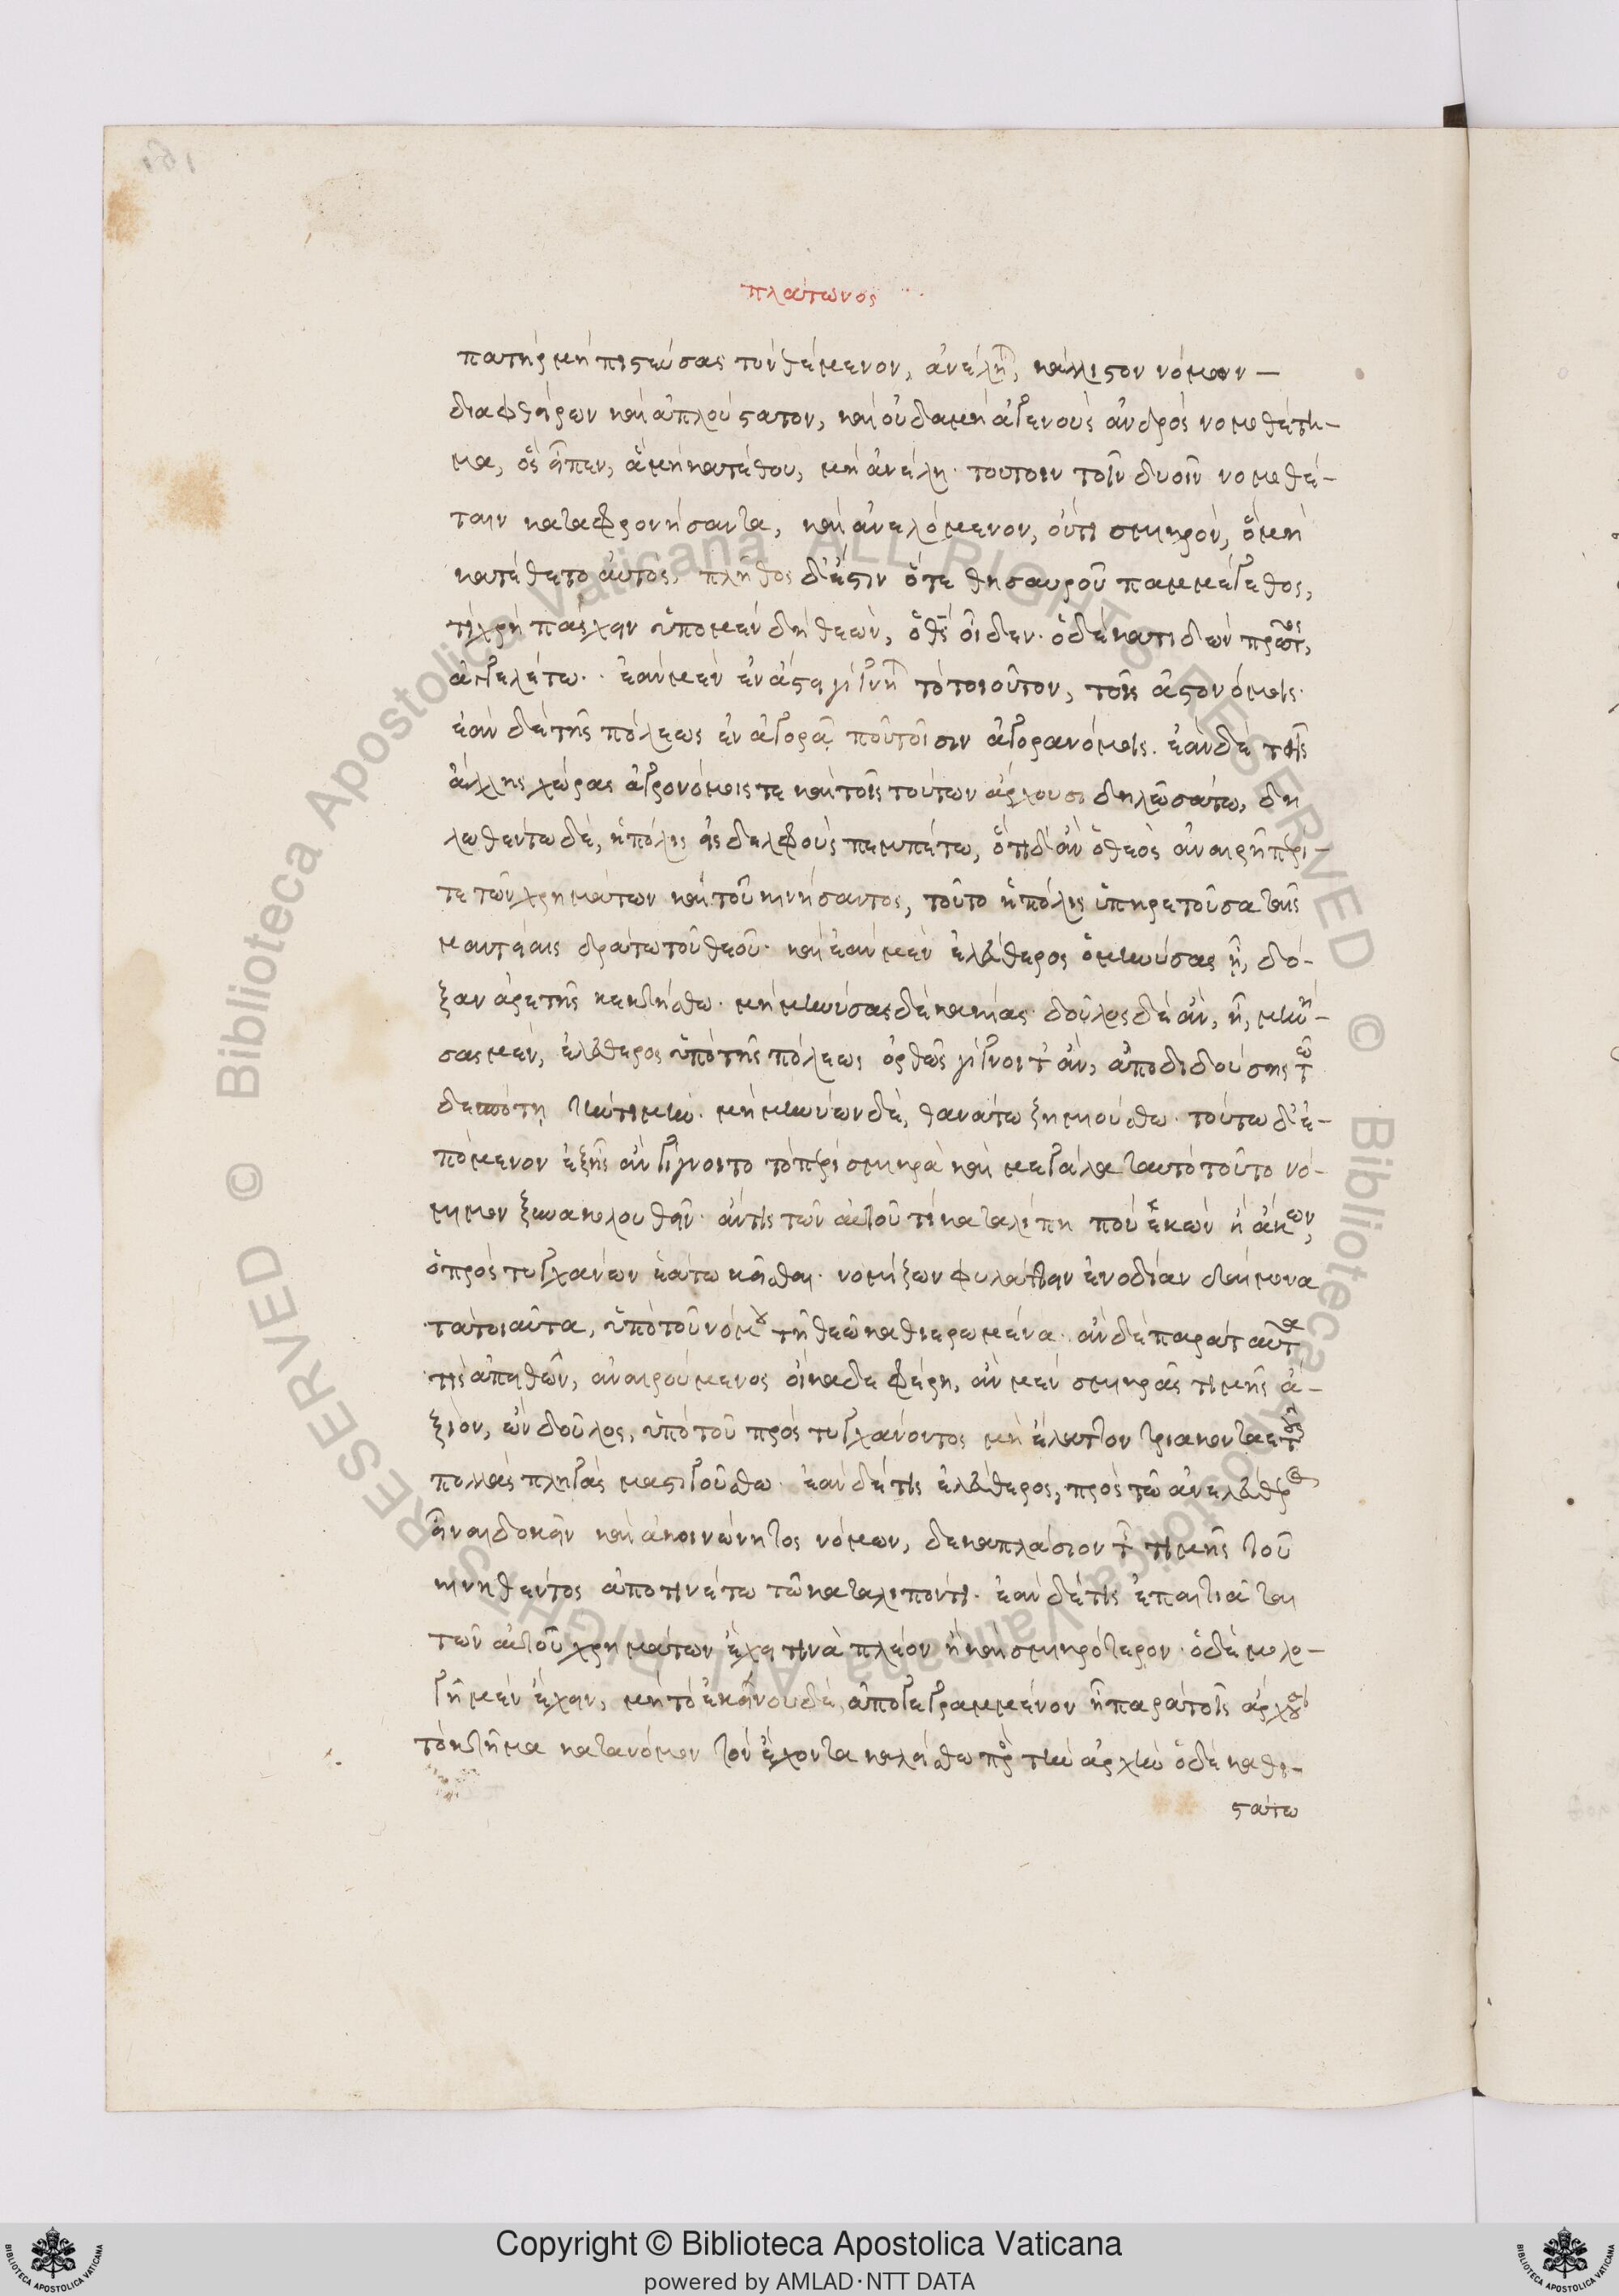 πλάτωνος
πατὴρ μὴ πιστεύσας τὸν θέμενον, ἀνέληται, κάλλιστον νόμων
διαφθείρων καὶ ἁπλούστατον, καὶ οὐδαμῇ ἀγεννοῦς ἀνδρὸς νομοθέτη-
μα, ὃς εἶπεν, ἃ μὴ κατέθου, μὴ ἀνέλῃ. τούτοιν τοῖν δυοῖν νομοθέ-
ταιν καταφρονήσαντα, καὶ ἀνελόμενον, οὔτι σμικρὸν, ὃ μὴ
κατέθετο αὐτὸς, πλῆθος δ' ἔστιν ὅτε θησαυροῦ παμμέγεθος,
τί χρὴ πάσχειν ὑπὸ μὲν δὴ θεῶν, ὁ θεὸς οἶδεν. ὁ δὲ κατιδὼν πρῶτος,
ἀγγελέτω. ἐὰν μὲν ἐν ἄστει γίγνηται τὸ τοιοῦτον, τοῖς ἀστυνόμοις.
ἐὰν δὲ τῆς πόλεως ἐν ἀγορᾷ που τοῖσιν ἀγορανόμοις. ἐὰν δὲ τῆς
ἄλλης χώρας ἀγρονόμοις τε καὶ τοῖς τούτων ἄρχουσι δηλωσάτω, δη
λωθέντων δὲ, ἡ πόλις εἰς δελφοὺς πεμπέτω, ὅτι δ' ἂν ὁ θεὸς ἀναιρῇ περὶ
τε τῶν χρημάτων καὶ τοῦ κινήσαντος, τοῦτο ἡ πόλις ὑπηρετοῦσα ταῖς
μαντείαις δράτω τοῦ θεοῦ. καὶ ἐὰν μὲν ἐλεύθερος ὁ μηνύσας ᾖ, δό-
ξαν ἀρετῆς κεκτήσθω. μὴ μηνύσας δὲ κακίας. δοῦλος δὲ ἂν, ᾖ, μηνύ-
σας μὲν, ἐλεύθερος ὑπὸ τῆς πόλεως ὀρθῶς γίγνοιτ' ἂν, ἀποδιδούσης τῷ
δεσπότῃ τὴν τιμὴν. μὴ μηνύων δὲ, θανάτῳ ζημιούσθω. τούτῳ δ' ἑ-
πόμενον ἑξῆς ἂν γίγνοιτο τὸ περὶ σμικρὰ καὶ μεγάλα ταυτὸ τοῦτο νό-
μιμον ξυνακολουθεῖν. ἄν τις τῶν αὑτοῦ τι καταλίπῃ που ἑκὼν ἢ ἄκων,
ὁ προστυγχάνων ἐάτω κεῖσθαι. νομίζων φυλάττειν ἐνοδίαν δαίμονα
τὰ τοιαῦτα, ὑπὸ τοῦ νόμου τῇ θεῷ καθιερωμένα. ἂν δὲ παρὰ ταῦτα
τις ἀπειθῶν, ἀναιρούμενος οἴκαδε φέρῃ, ἂν μὲν σμικρᾶς τιμῆς ἄ-
ξιον, ὢν δοῦλος, ὑπὸ τοῦ προστυγχάνοντος μὴ ἔλαττον τριακονταέτους
πολλὰς πληγὰς μαστιγούσθω. ἐὰν δέ τις ἐλεύθερος, πρὸς τῷ ἀνελεύθερος
εἶναι δοκεῖν καὶ ἀκοινώνητος νόμων, δεκαπλάσιον τῆς τιμῆς τοῦ
κινηθέντος ἀποτινέτω τῷ καταλιπόντι. ἐὰν δέ τις ἐπαιτιᾶται
τῶν αὑτοῦ χρημάτων ἔχειν τινὰ πλέον ἢ καὶ σμικρότερον. ὁ δὲ ὁμολο-
γῇ μὲν ἔχειν, μὴ τὸ ἐκείνου δὲ, ἀπογεγραμμένον ᾖ παρὰ τοῖς ἄρχουσι
τὸ κτῆμα κατὰ νόμον τὸν ἔχοντα καλείσθω πρὸς τὴν ἀρχὴν ὁ δὲ καθι-
στάτω